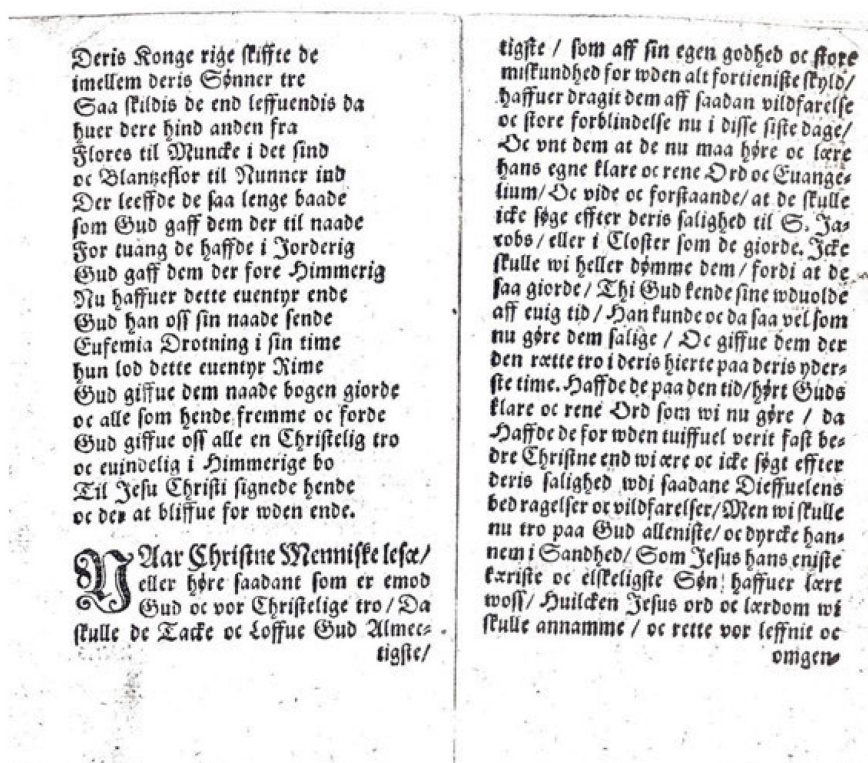 Deris Konge rige skiffte de
imellem deris Sønner tre
Saa skildis de end leffuendis da
huer dere hind anden fra
Flores til Muncke i det sind
oc Blantzeflor til Nunner ind
Der leeffde de saa lenge baade
som Gud gaff dem der til naade
For tuang de haffde i Jorderig
Gud gaff dem der fore Himmerig
Nu haffuer dette euentyr ende
Gud han oss sin naade sende
Eufemia Drotning i sin time
hun lod dette euentyr Rime
Gud giffue dem naade bogen giorde
oc alle som hende fremme oc forde
Gud giffue oss alle en Christelig tro
oc euindelig i Himmerige bo
Til Jesu Christi signede hende
oc der at bliffue for wden ende.
NAar Christne Menniske lesæ/
eller høre saadant som er emod
Gud oc vor Christelige tro / Da
skulle de Tacke oc Loffue Gud Almec-
tigste/
tigste / som aff sin egen godhed oc store
miskundhed for wden alt fortieniste skyld/
haffuer dragit dem aff saadan vildfarelse
oc store forblindelse nu i disse siste dage/
Oc vnt dem at de nu maa høre oc lære
hans egne klare oc rene Ord oc Euange-
lium/ Oc vide oc forstaande/ at de skulle
icke søge effter deris salighed til S. Ja-
cobs / eller i Closter som de giorde. Icke
skulle wi heller dømme dem / fordi at de
saa giorde / Thi Gud kende sine wduolde
aff euig tid / Han kunde oc da saa vel som
nu gøre dem salige / Oc giffue dem der
den rætte tro i deris hierte paa deris yder-
ste time. Haffde de paa den tid/ hørt Guds
klare oc rene Ord som wi nu gøre / da
Haffde de for wden tuiffuel verit fast be-
dre Christne end wi ære oc icke søgt effter
deris salighed wdi saadane Dieffuelens
bedragelser oc vildfarelser/ Men wi skulle
nu tro paa Gud alleniste/ oc dyrcke han-
nem i Sandhed/ Som Jesus hans eniste
kæriste oc elskeligste Søn haffuer lært
woss/ Huilcken Jesus ord oc lærdom wi
skulle annamme / oc rette vor leffnit oc
omgen-